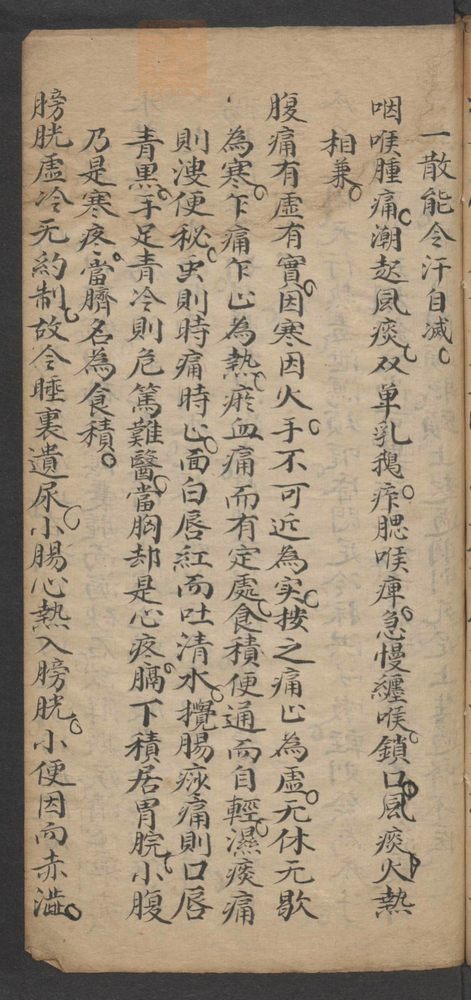 一散能令汗自减。
咽喉腫痛。潮起風痰。双单乳鹅。痄腮喉痺。急慢纏喉。鎖口風痰火熱
相兼。
腹痛有虛有實。因寒因火。手不可近為实。按之痛止為虛。无休无歇
為寒。乍痛乍止為熱。瘀血痛而有定處。食積便通而自輕。濕痰痛
則溲便秘。虫則時痛時止。面白唇紅而吐清水。攪腸痧痛則口唇
青黑。手足青冷則危篤難醫。當胸却是心疼。膈下積居胃脘。小腹
乃是寒疼。當臍名為食積。
膀胱虛冷无約制。故令睡裏遺尿。小腸心熱入膀胱。小便因而赤澁。